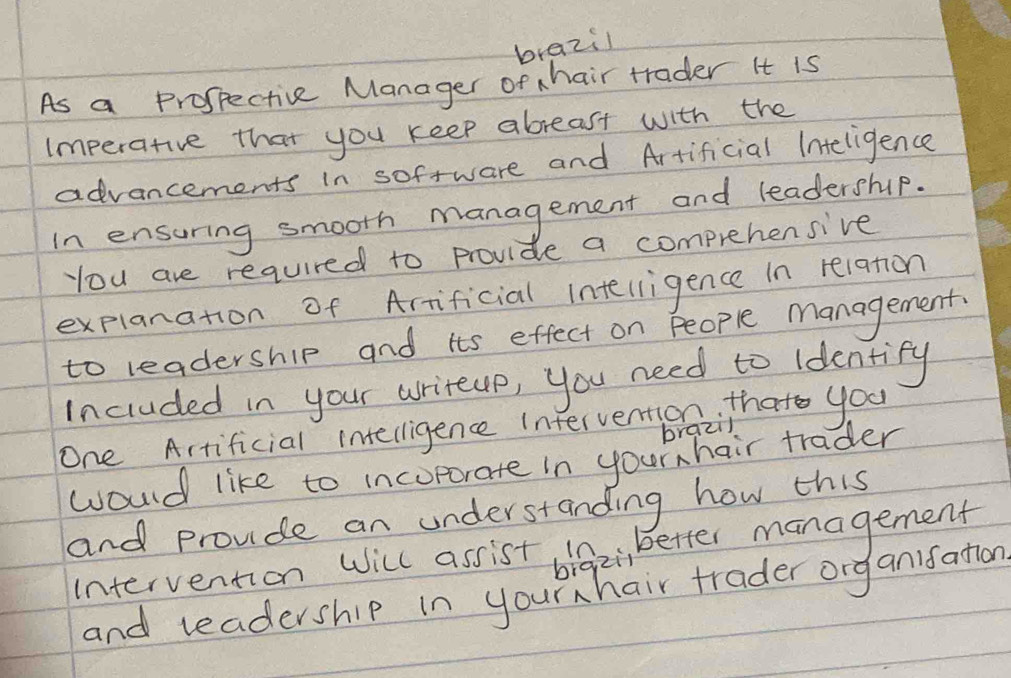 As a Prospective Manager of brazil hair trader it is
imperative that you keep abreast with the
advancements in software and Artificial Inteligence
in ensuring smooth management and leadership.
You are required to provide a comprehensive
explanation of Artificial intelligence in relation
to leadership and its effect on people management.
Included in your writeup, you need to identify
one Artificial intelligence intervention that you
would like to incoporate in your brazil hair trader
and provide an understanding how this
intervention will assist in better management
and leadership in your brazil hair trader organisation.